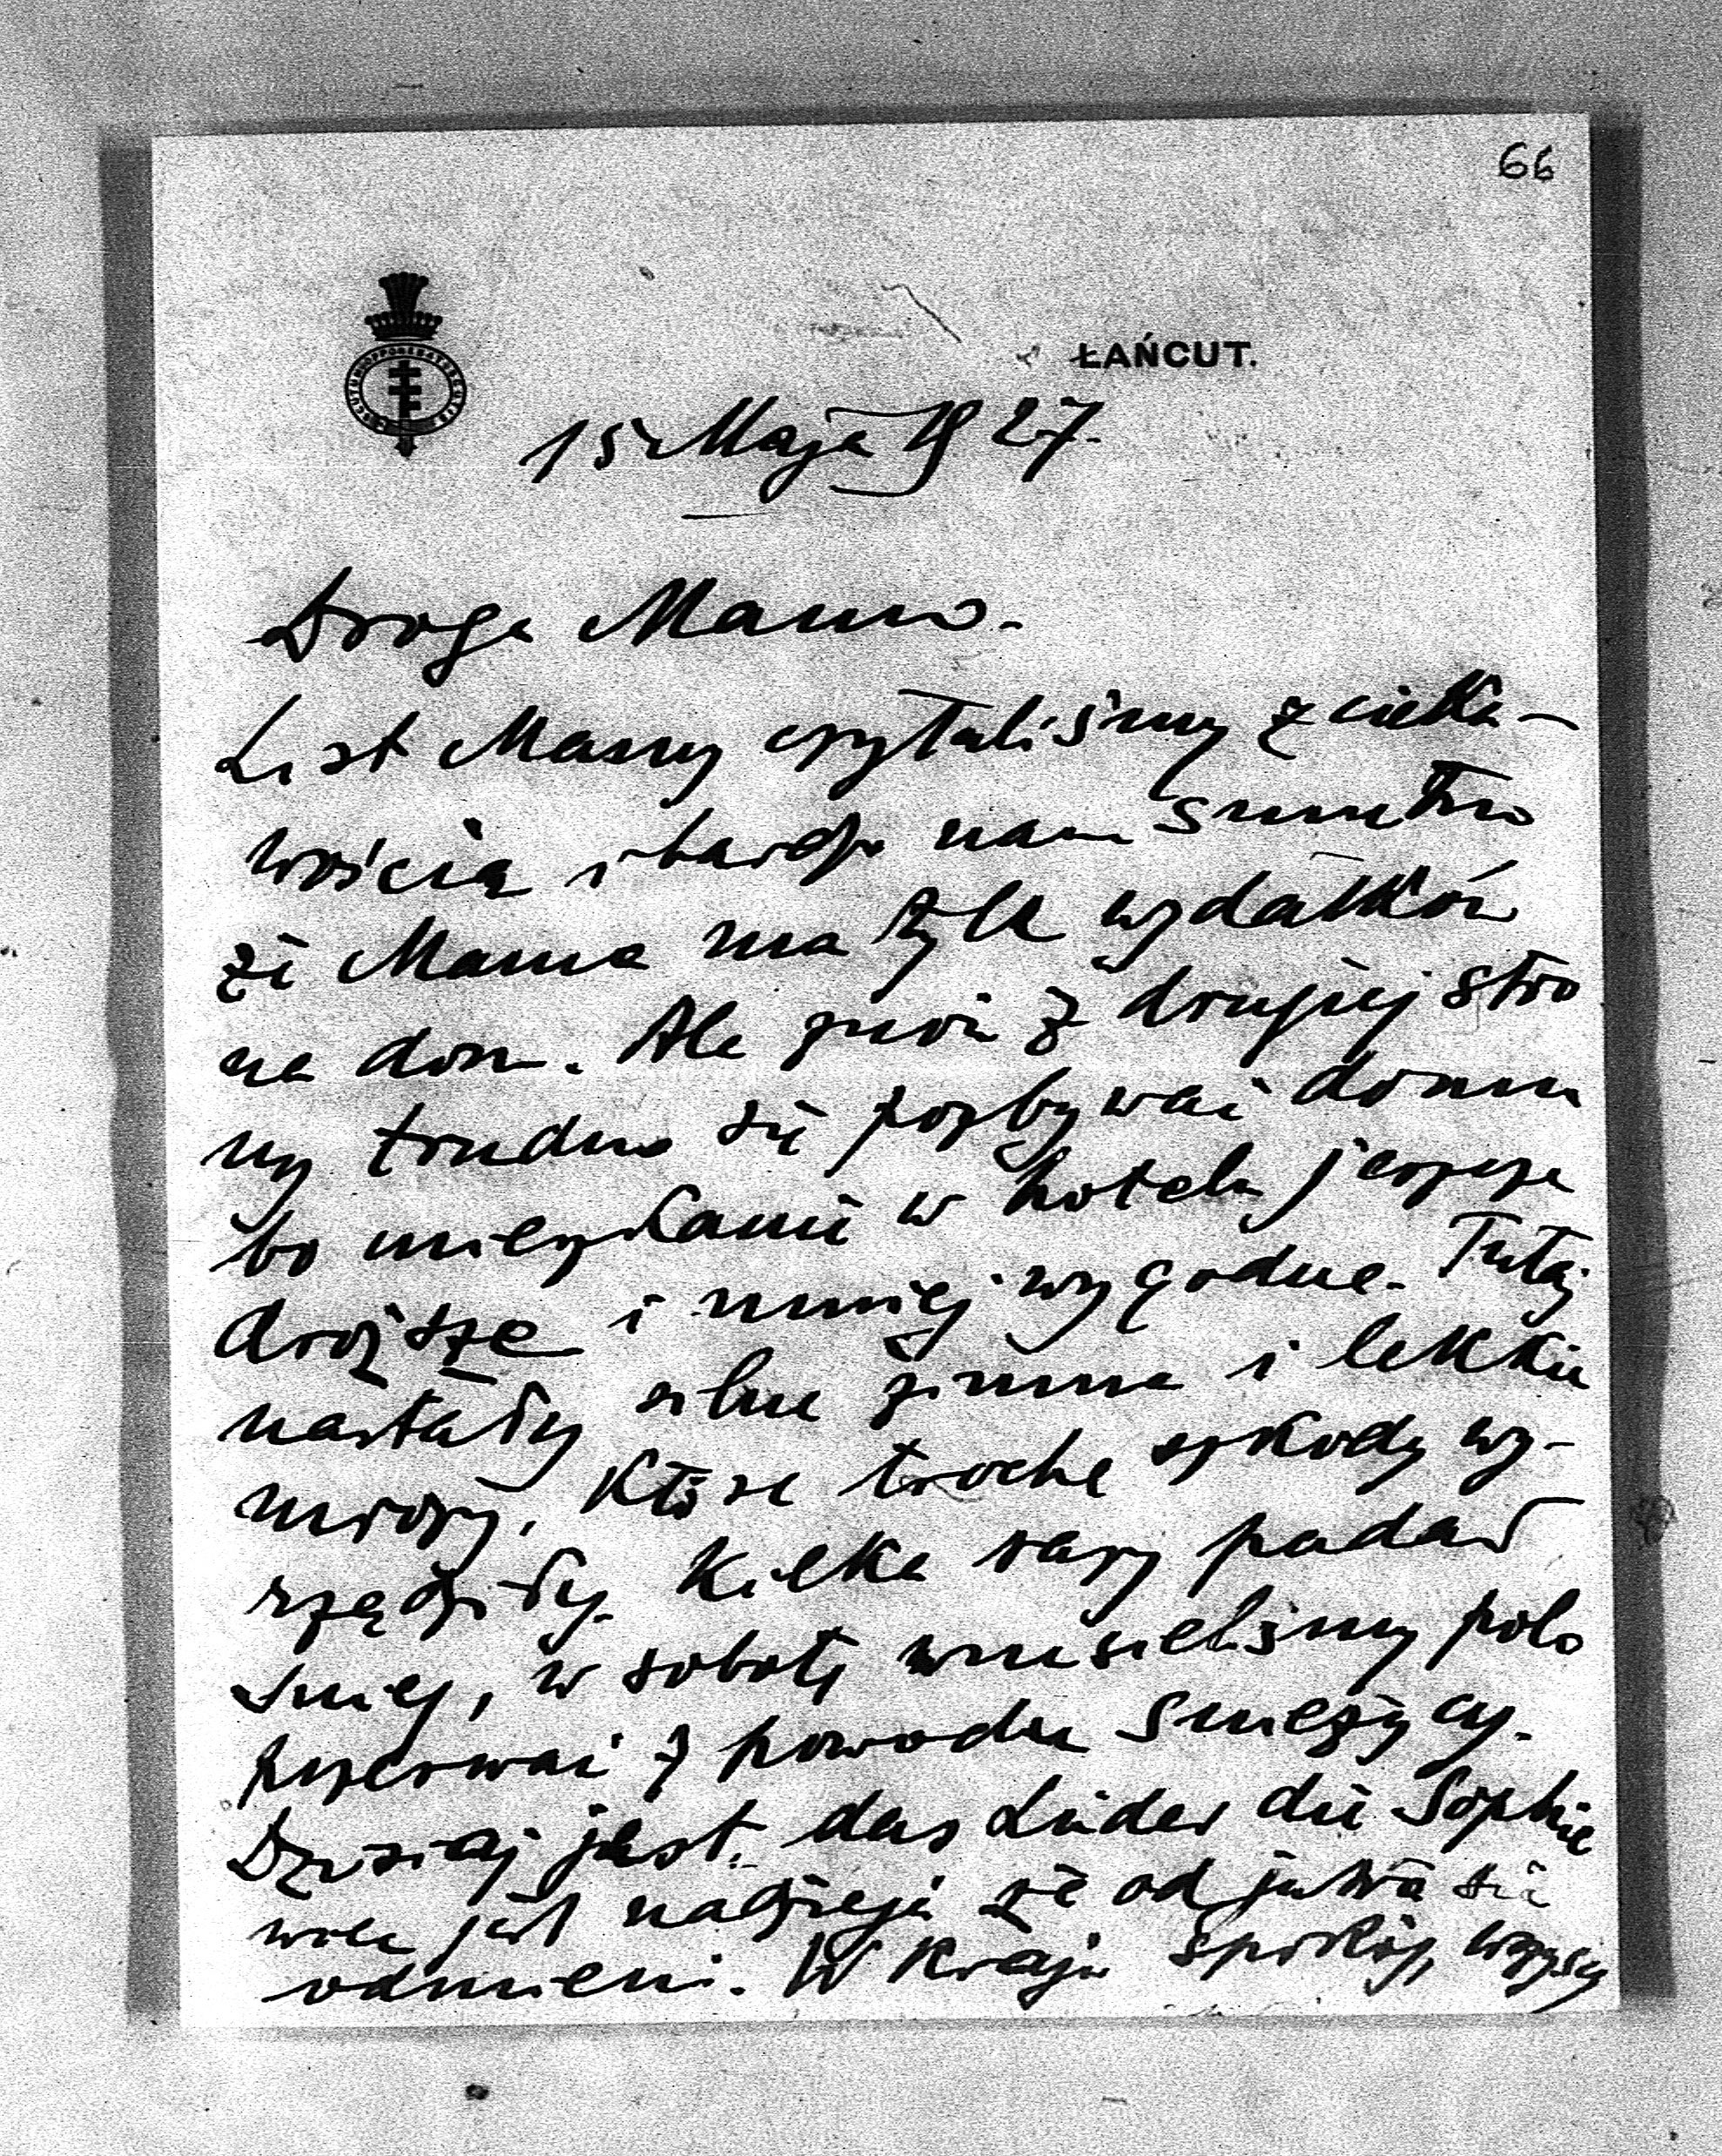 66
ŁAŃCUT.
15 Maja 1927.
Droga Mamo.
List Mamy czytaliśmy z cieka-
wością i bardzo nam smutno
że Mama ma tyle wydatków
na dom. Ale znów z drugiej stro
ny trudno się pozbywać domu
bo mieszkanie w hotelu jeszcze
droższe i mniej wygodne. Tutaj
nastały silne zimna i lekkie
mrozy, które trochę szkody wy-
rządziły. Kilka razy padał
śnieg, w sobotę musieliśmy polo
przerwać z powodu śnieżycy.
Dzisiaj jest das Luder die Sophie
więc jest nadzieja że od jutra się
odmieni. W kraju spokój, wszyscy